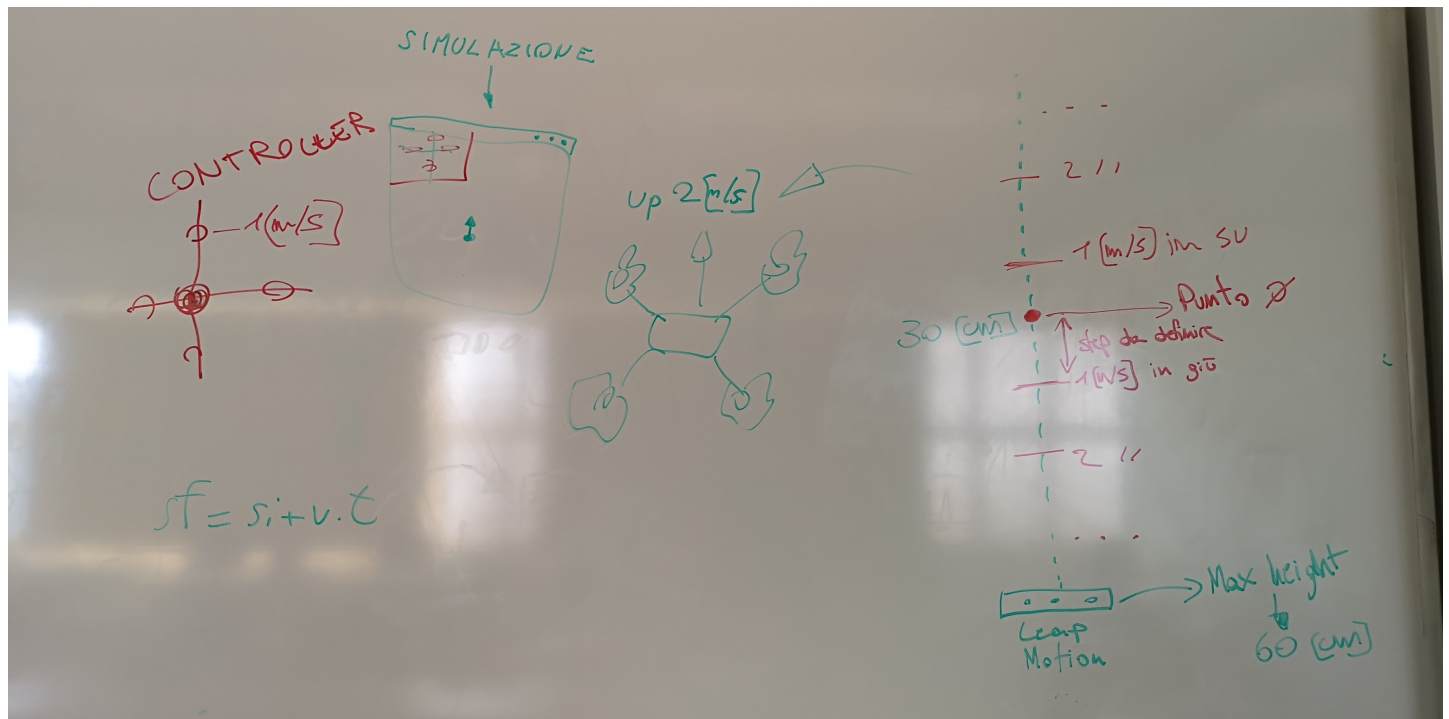 SIMULAZIONE
CONTROLLER
1 [m/s]
up 2 [m/s]
sf = si + v . t
. . .
2 ''
1 [m/s] in su
Punto Ø
30 [cm]
step da definire
1 [m/s] in giù
2 ''
. . .
Leap
Motion
Max height
60 [cm]